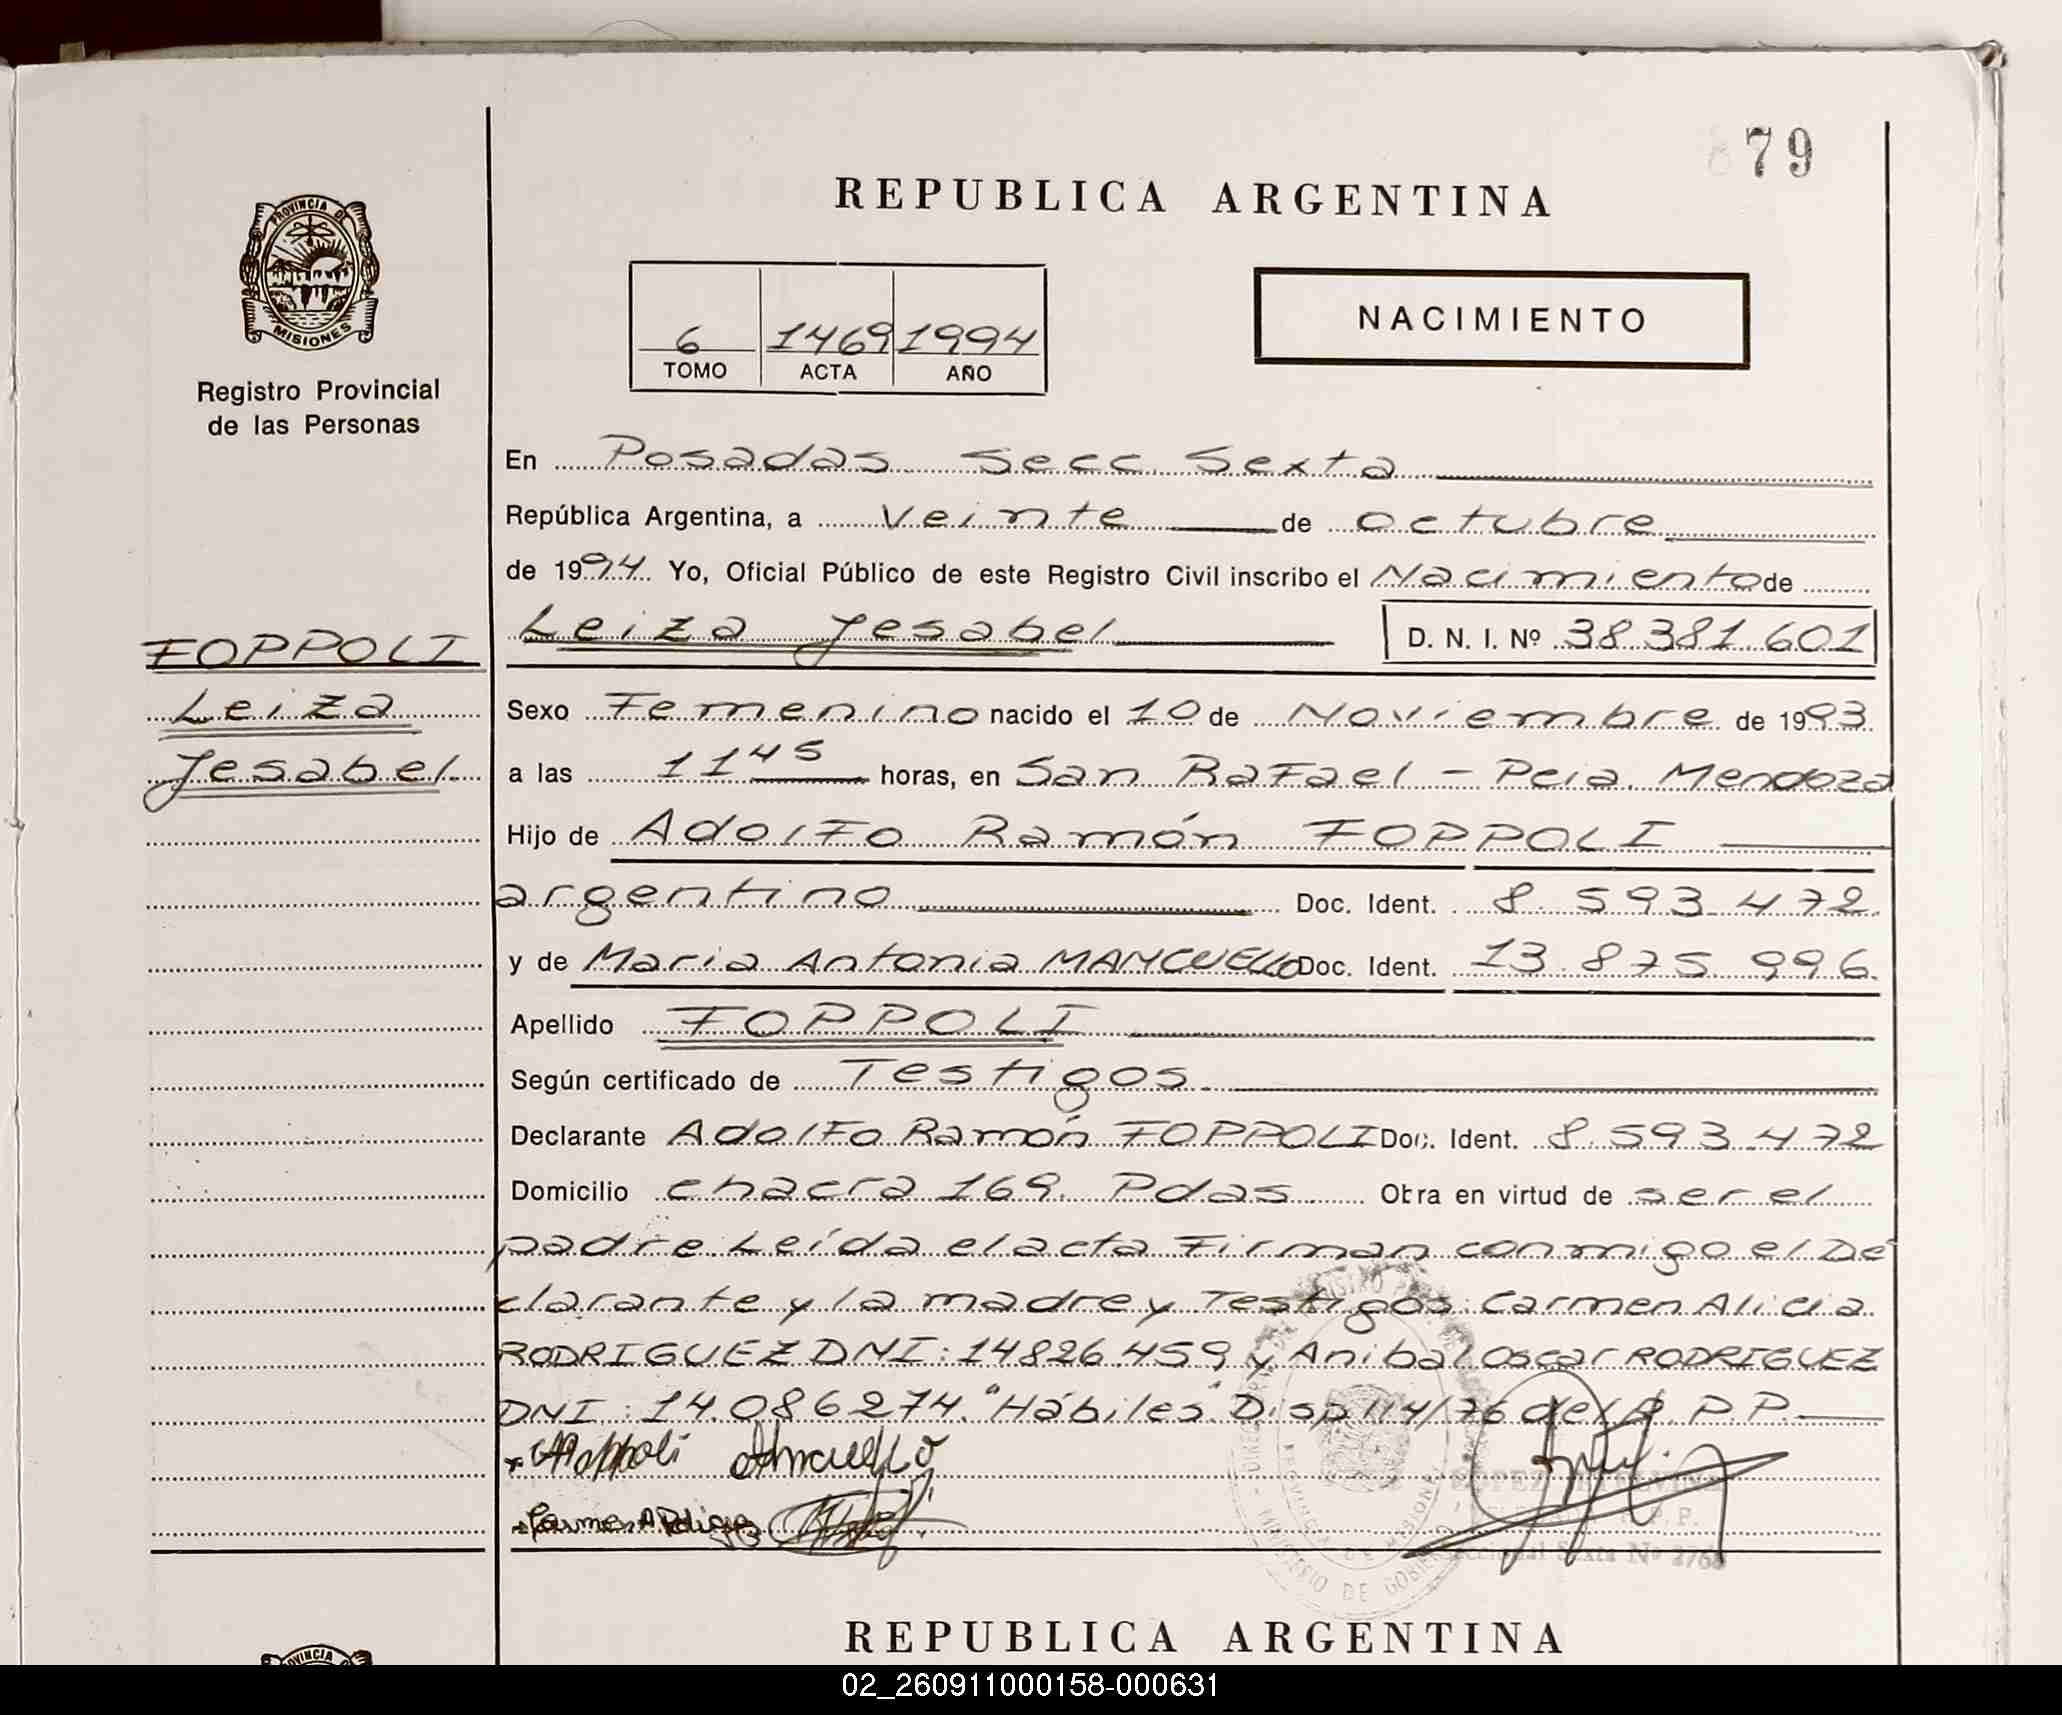 79
REPUBLICA ARGENTINA
PROVINCIA DE
MISIONES
Registro Provincial
de las Personas
6 1469 1994
TOMO ACTA AÑO
NACIMIENTO
En Posadas Secc. Sexta
República Argentina, a veinte de octubre
de 1994. Yo, Oficial Público de este Registro Civil inscribo el Nacimiento de
Leiza Jesabel D. N. I. Nº 38.381.601
FOPPOLI
Leiza
Jesabel
Sexo Femenino nacido el 10 de Noviembre de 1993
a las 11 45 horas, en San Rafael - Pcia. Mendoza
Hijo de Adolfo Ramón FOPPOLI
argentino Doc. Ident. 8.593.472
y de Maria Antonia MANCUELLO Doc. Ident. 13.875.996
Apellido FOPPOLI
Según certificado de Testigos
Declarante Adolfo Ramón FOPPOLI Doc. Ident. 8.593.472
Domicilio chacra 169. Pdas. Obra en virtud de ser el
padre Leída el acta Firman conmigo el De
clarante y la madre y Testigos: Carmen Alicia
RODRIGUEZ DNI: 14826.459 y Anibal Oscar RODRIGUEZ
DNI: 14.086274. "Hábiles" Disp 114/76 del R.P.P.
Seccional Sexta Nº 276
REPUBLICA ARGENTINA
02_260911000158-000631